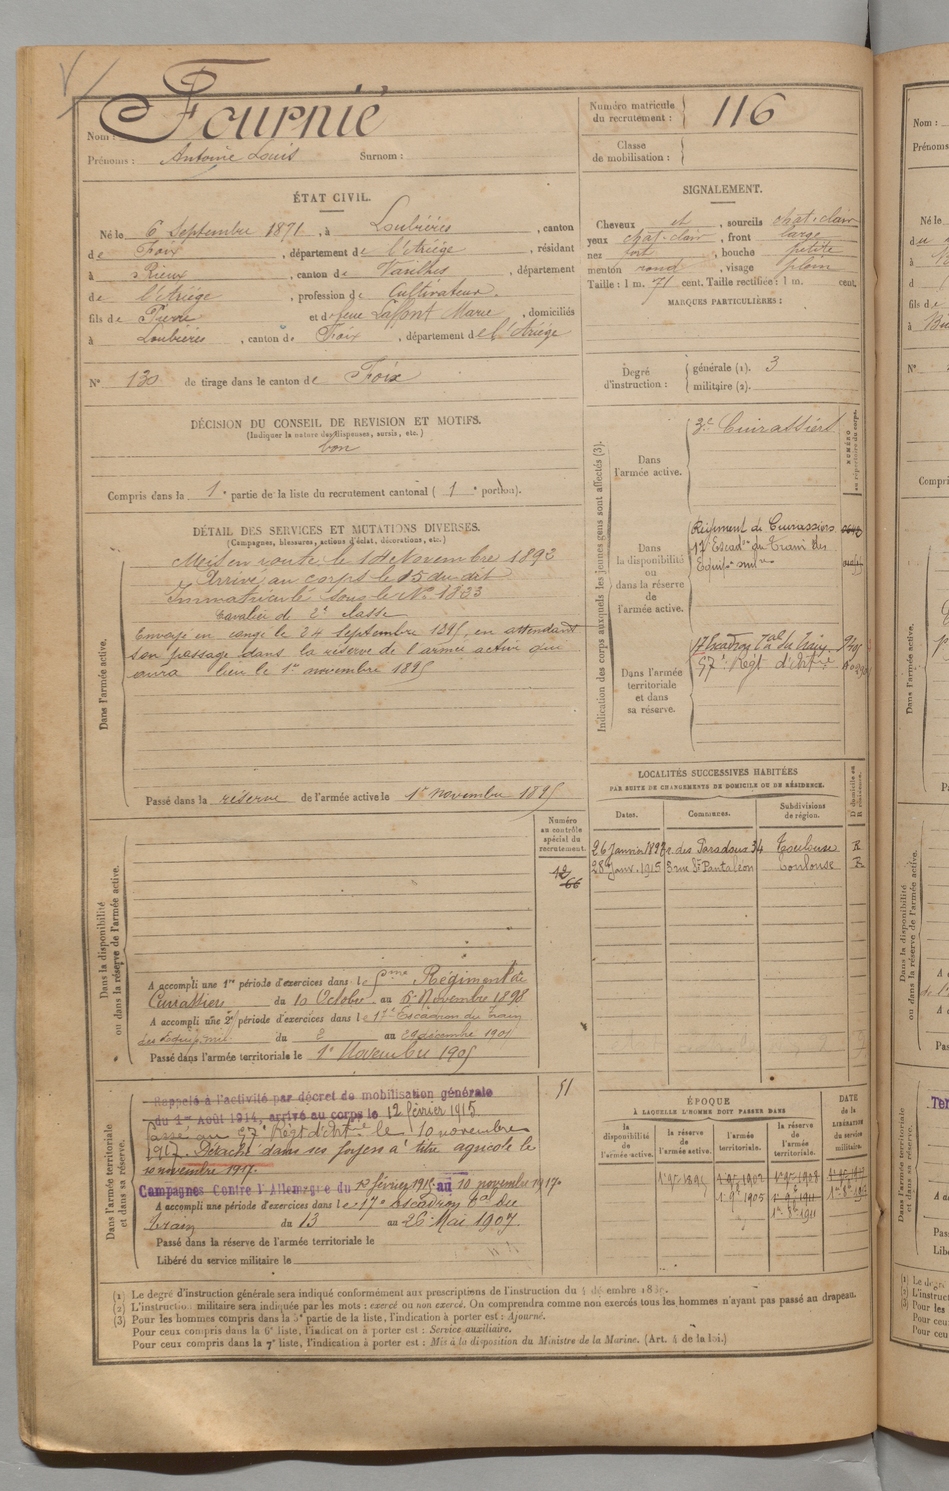 Fournié
Nom :
Prénoms : Antoine Louis Surnom :
Numéro matricule du recrutement : 116
Classe de mobilisation :
ÉTAT CIVIL.
Né le 6 Septembre 1871, à Loubières, canton
de Foix, département de l'Ariège, résidant
à Rieux, canton de Varilhes, département
de l'Ariège, profession de Cultivateur.
fils de Pierre et de feue Lafont Marie, domiciliés
à Loubières, canton de Foix, département de l'Ariège
N° 130 de tirage dans le canton de Foix
SIGNALEMENT.
Cheveux et, sourcils chat-clair
yeux chat-clair, front large
nez fort, bouche petite
menton rond, visage plein
Taille : 1 m. 71 cent. Taille rectifiée : 1 m. cent.
MARQUES PARTICULIÈRES :
Degré d'instruction : générale (1). 3
militaire (2).
DÉCISION DU CONSEIL DE REVISION ET MOTIFS.
(Indiquer la nature des dispenses, sursis, etc.)
bon
Compris dans la 1e partie de la liste du recrutement cantonal ( 1e portion).
DÉTAIL DES SERVICES ET MUTATIONS DIVERSES.
(Campagnes, blessures, actions d'éclat, décorations, etc.)
Dans l'armée active.
Mis en route le 14 Novembre 1892
Arrivé au corps le 15 du dit
Immatriculé sous le N° 1823
Cavalier de 2e classe
Envoyé en congé le 24 septembre 1895, en attendant
son passage dans la réserve de l'armée active qui
aura lieu le 1er novembre 1895
Passé dans la réserve de l'armée active le 1er Novembre 1895
Indication des corps auxquels les jeunes gens sont affectés (3).
NUMÉRO au répertoire du corps.
Dans l'armée active.
3e Cuirassiers
Dans la disponibilité ou dans la réserve de l'armée active.
Régiment de Cuirassiers
17 Escadon du Train des
Equip. mil.
Dans l'armée territoriale et dans sa réserve.
17 Escadron Tal du Train
57e Régt d'Art
LOCALITÉS SUCCESSIVES HABITÉES
PAR SUITE DE CHANGEMENTS DE DOMICILE OU DE RÉSIDENCE.
Dates. Communes. Subdivisions de région. D domicile ou R résidence.
26 Janvier 189 r. des Paradoux 34 Toulouse R
28 Janv. 1915 3 rue St Pantaléon Toulouse R
Dans la disponibilité ou dans la réserve de l'armée active.
Numéro au contrôle spécial du recrutement.
A accompli une 1re période d'exercices dans le Régiment de
Cuirassiers du 10 Octobre au 6 Novembre 1898
A accompli une 2e période d'exercices dans le 17e Escadron du train
des Equip. mil. du 2 au 29 décembre 1901
Passé dans l'armée territoriale le 1er Novembre 1905
Dans l'armée territoriale et dans sa réserve.
51
Rappelé à l'activité par décret de mobilisation générale
du 1er Août 1914, arrivé au corps le 12 février 1915
Passé au 57e Régt d'Art le 10 novembre
1917. Détaché dans ses foyers à titre agricole le
10 novembre 1917.
Campagnes Contre l'Allemagne du 12 février 1915 au 10 novembre 1917.
A accompli une période d'exercices dans le 17e escadron Tal du
train du 13 au 26 Mai 1907.
Passé dans la réserve de l'armée territoriale le
Libéré du service militaire le
ÉPOQUE
À LAQUELLE L'HOMME DOIT PASSER DANS
la disponibilité de l'armée active. la réserve de l'armée active. l'armée territoriale. la réserve de l'armée territoriale. DATE de la LIBÉRATION du service militaire.
(1) Le degré d'instruction générale sera indiqué conformément aux prescriptions de l'instruction du
(2) L'instruction militaire sera indiquée par les mots : exercé ou non exercé. On comprendra comme non exercés tous les hommes n'ayant pas passé au drapeau.
(3) Pour les hommes compris dans la 5e partie de la liste, l'indication à porter est : Ajourné.
Pour ceux compris dans la 6e liste, l'indication à porter est : Service auxiliaire.
Pour ceux compris dans la 7e liste, l'indication à porter est : Mis à la disposition du Ministre de la Marine. (Art. 4 de la loi.)